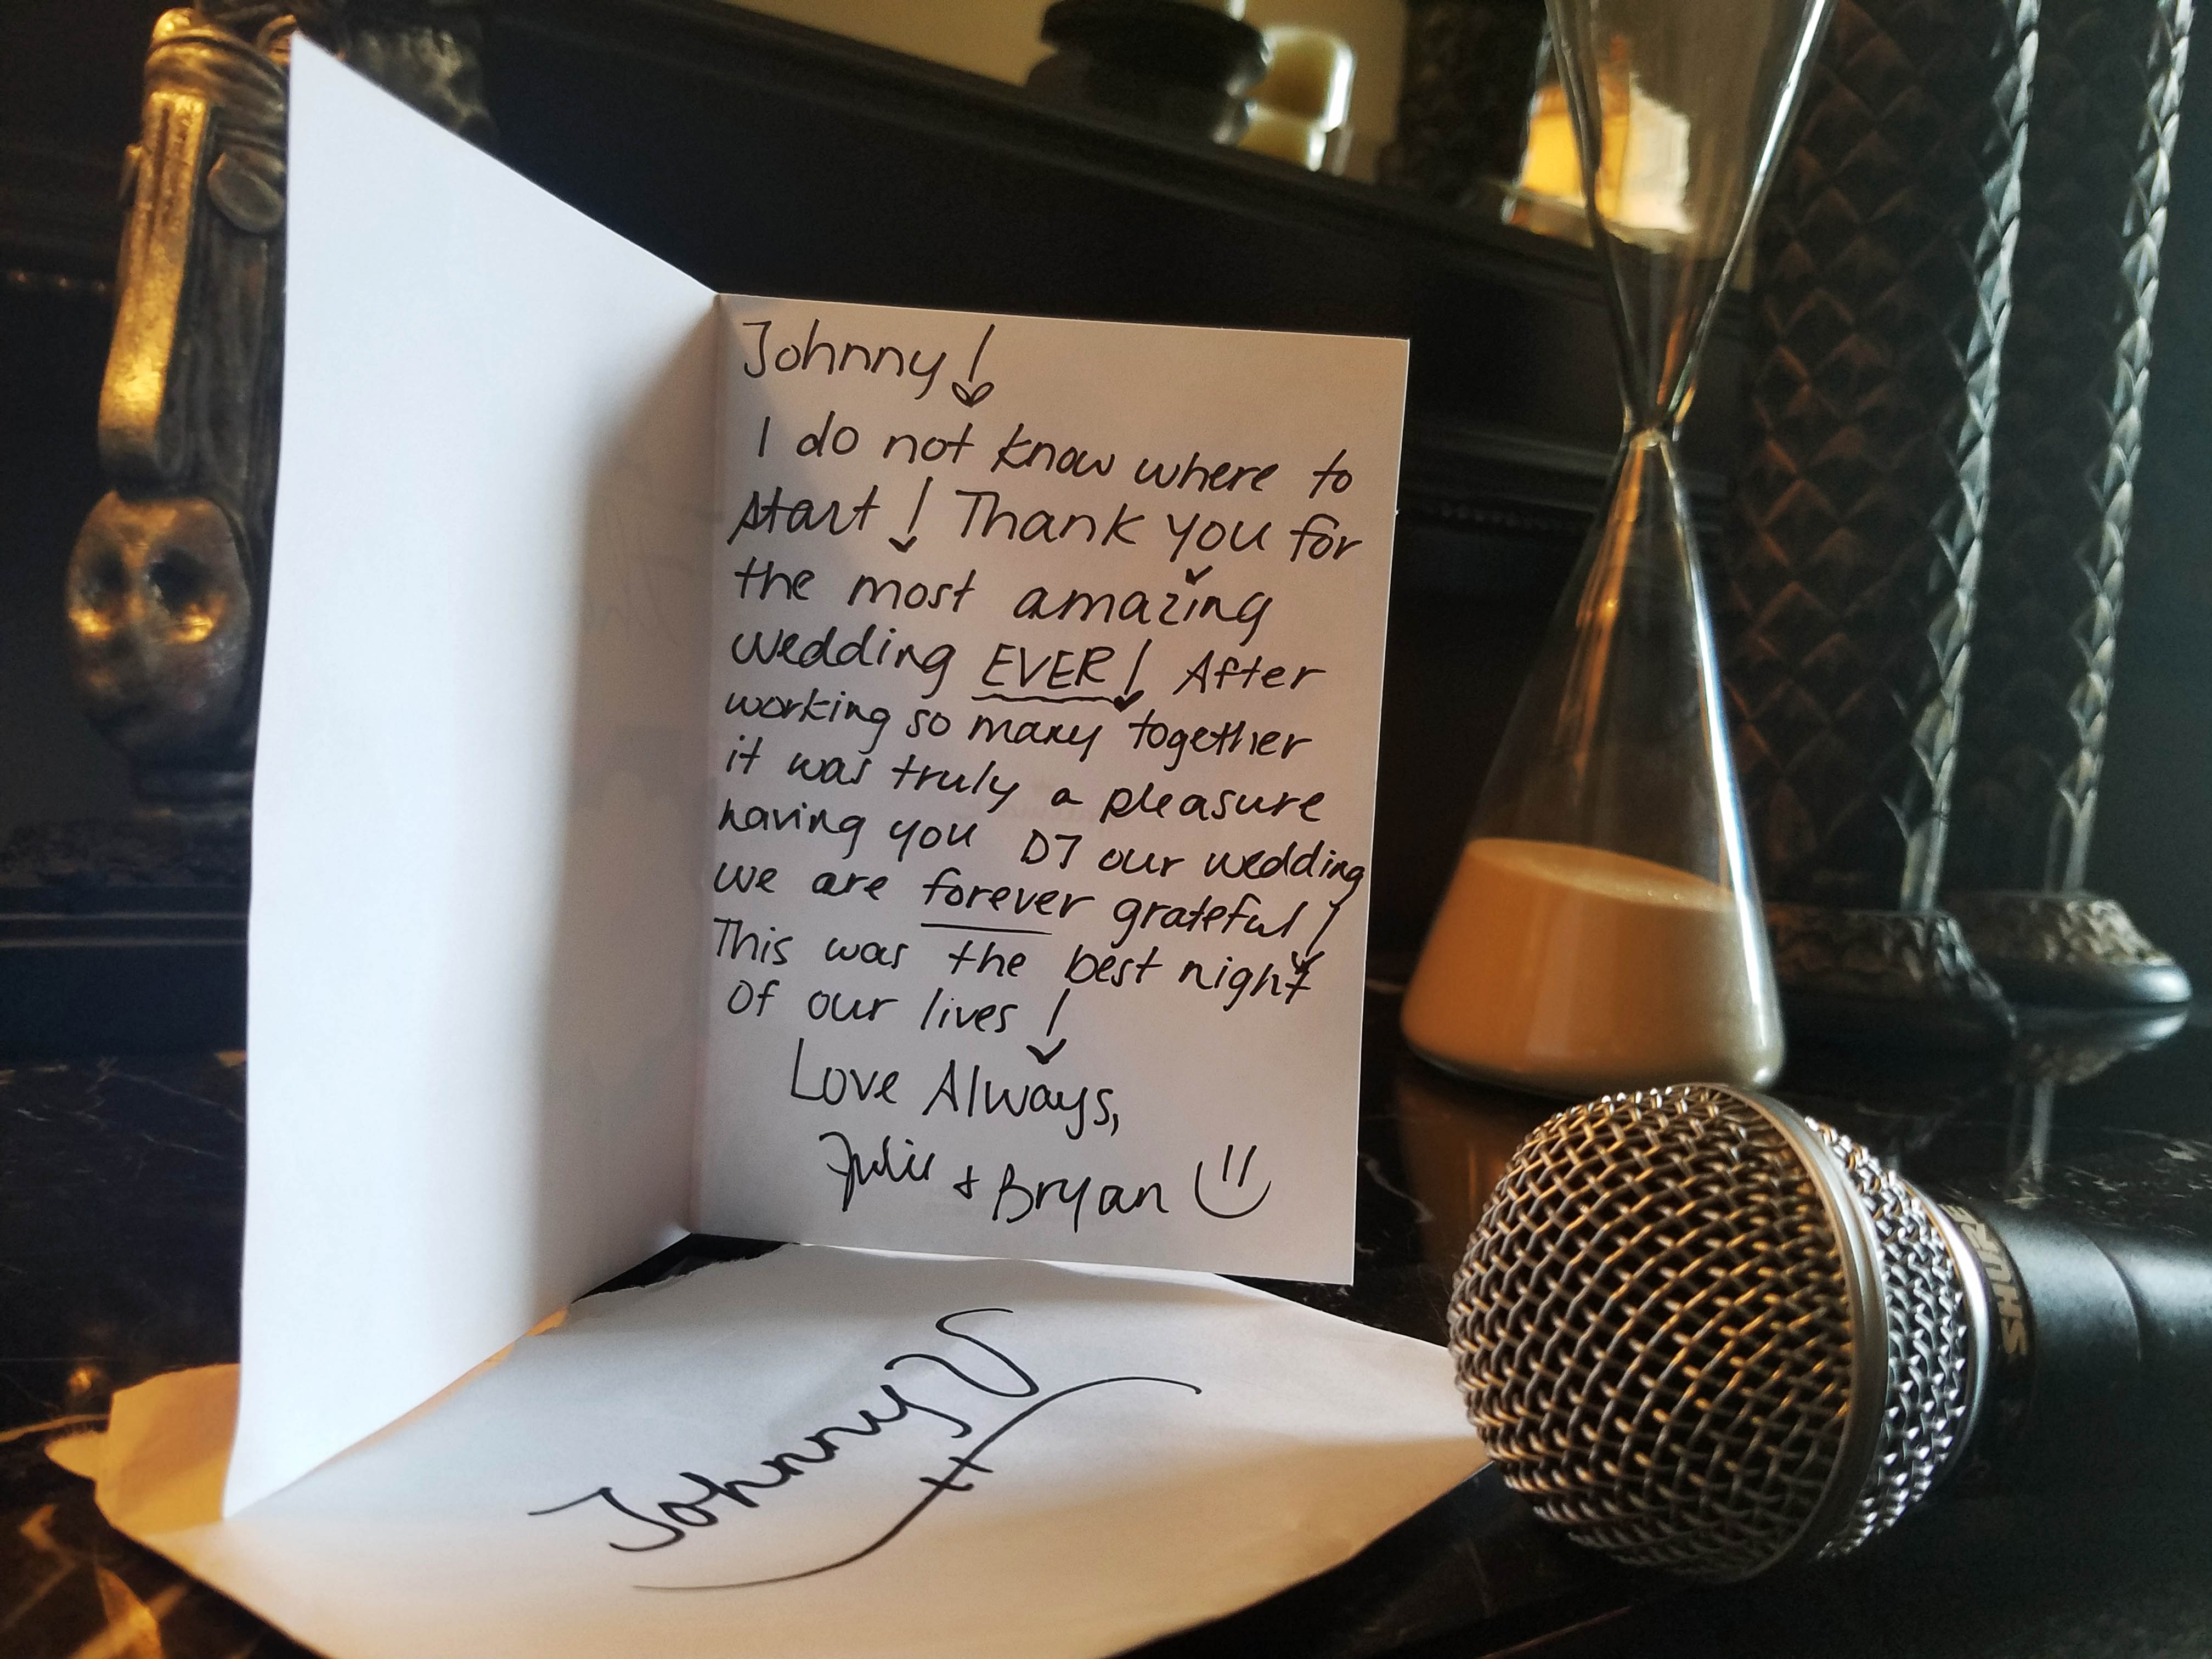 Johnny!
I do not know where to
start! Thank you for
the most amazing
wedding EVER! After
working so many together
it was truly a pleasure
having you DJ our wedding
we are forever grateful!
This was the best night
of our lives!
Love Always,
Julie + Bryan
Johnny V
SHURE